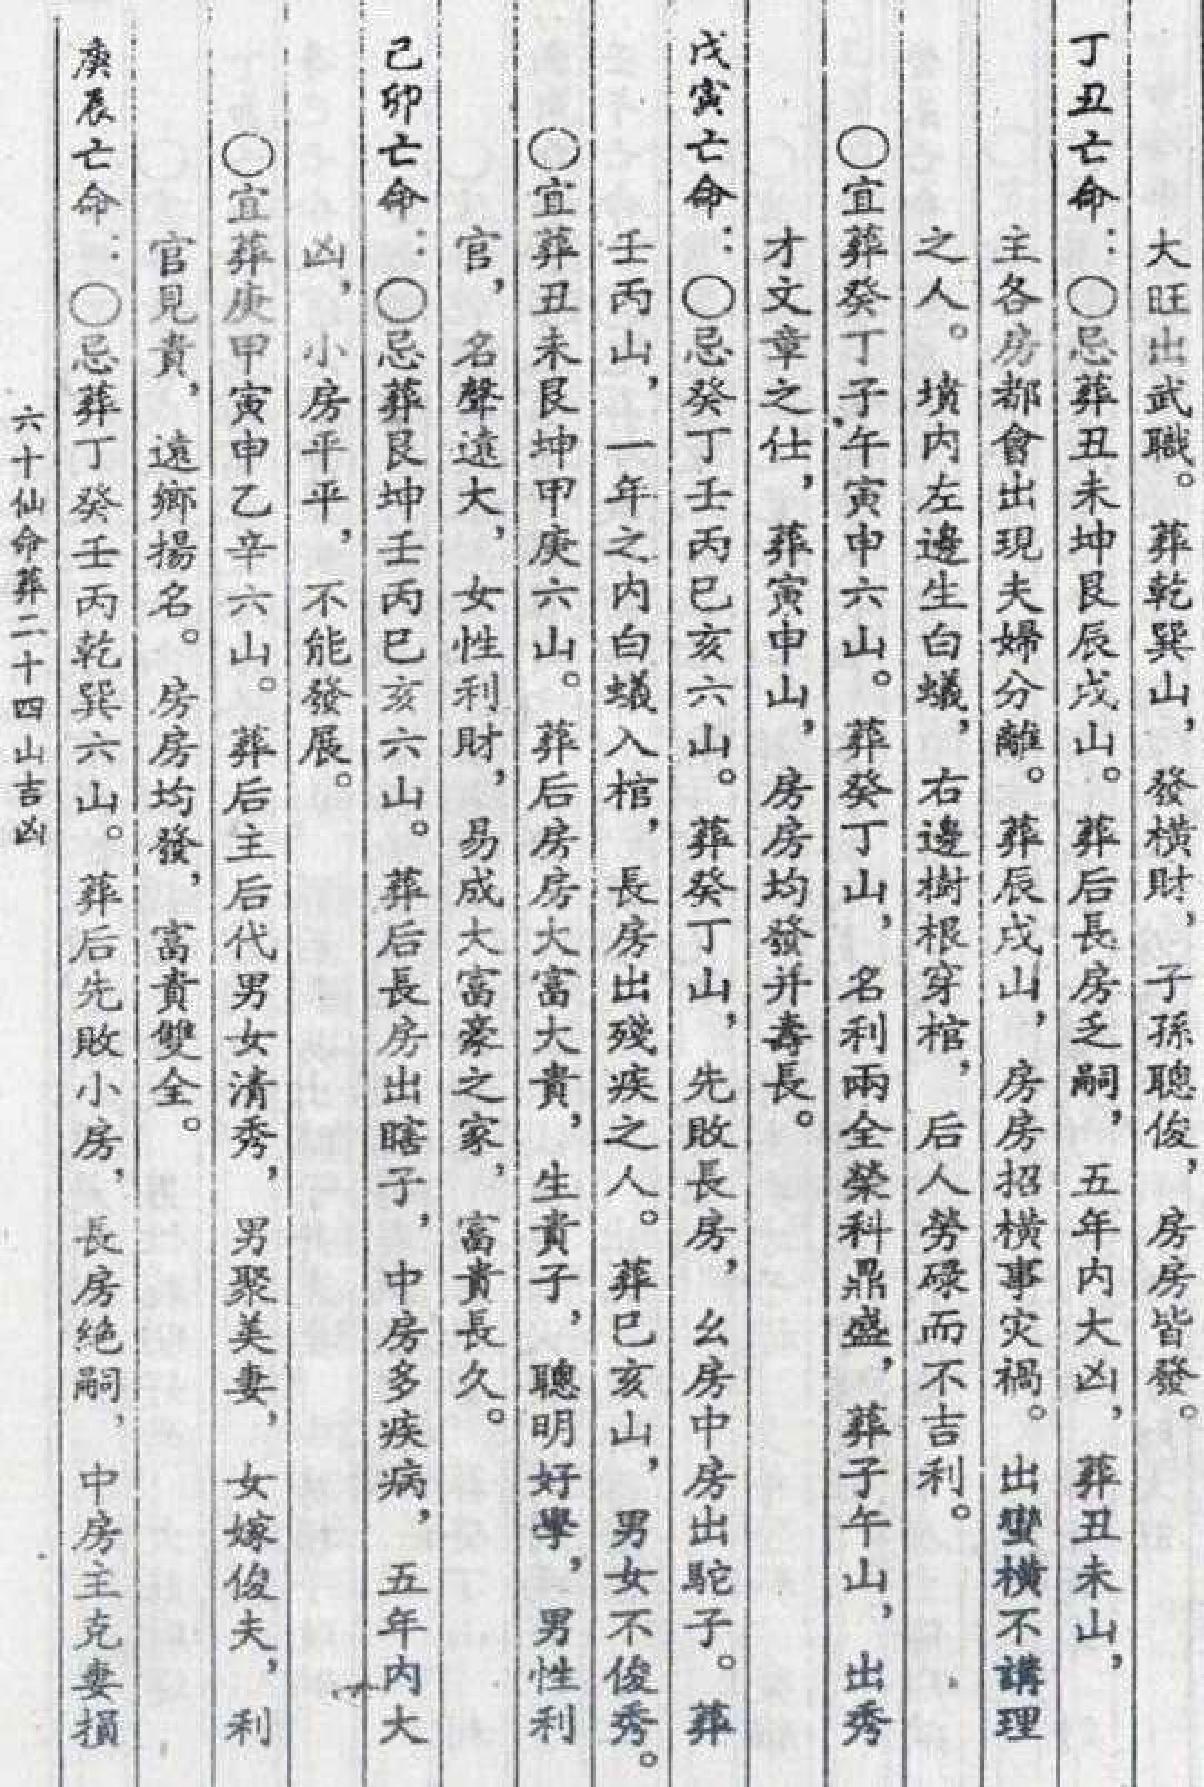 大旺出武職。葬乾巽山，發橫財，子孫聰俊，房房皆發。
丁丑亡命：○忌葬丑未坤艮辰戌山。葬后長房乏嗣，五年内大凶，葬丑未山，
主各房都會出現夫婦分離。葬辰戌山，房房招橫事灾禍。出蠻橫不講理
之人。墳内左邊生白蟻，右邊樹根穿棺，后人勞碌而不吉利。
○宜葬癸丁子午寅申六山。葬癸丁山，名利兩全榮科鼎盛，葬子午山，出秀
才文章之仕，葬寅申山，房房均發并壽長。
戊寅亡命：○忌癸丁壬丙巳亥六山。葬癸丁山，先敗長房，幺房中房出駝子。葬
壬丙山，一年之内白蟻入棺，長房出殘疾之人。葬巳亥山，男女不俊秀。
○宜葬丑未艮坤甲庚六山。葬后房房大富大貴，生貴子，聰明好學，男性利
官，名聲遠大，女性利財，易成大富豪之家，富貴長久。
己卯亡命：○忌葬艮坤壬丙巳亥六山。葬后長房出瞎子，中房多疾病，五年内大
凶，小房平平，不能發展。
○宜葬庚甲寅申乙辛六山。葬后主后代男女清秀，男聚美妻，女嫁俊夫，利
官見貴，遠鄉揚名。房房均發，富貴雙全。
庚辰亡命：○忌葬丁癸壬丙乾巽六山。葬后先敗小房，長房绝嗣，中房主克妻損
六十仙命葬二十四山吉凶